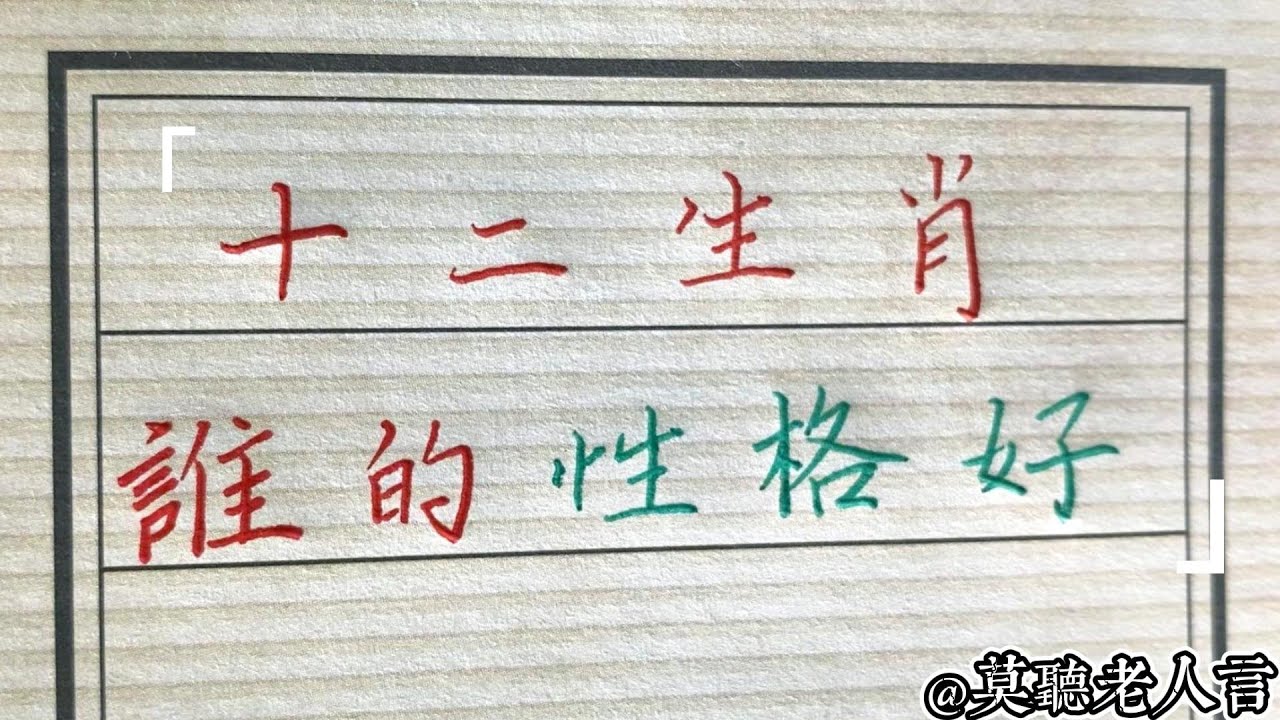 「十二生肖
誰的性格好」
@莫聽老人言